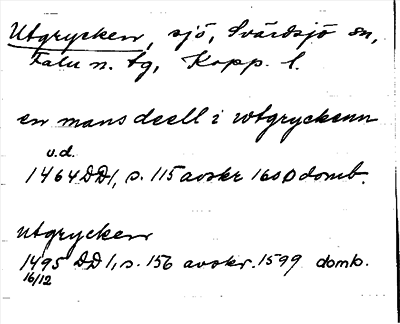 Utgrycken, sjö, Svärdsjö sn,
Falu n. tg, Kopp. l.
en mans deell i wtgryckenn
u.d.
1464 DD 1, s. 115 avskr 1600 domb.
utgrycken
1495 DD 1, s. 156 avskr. 1599 domb.
16/12